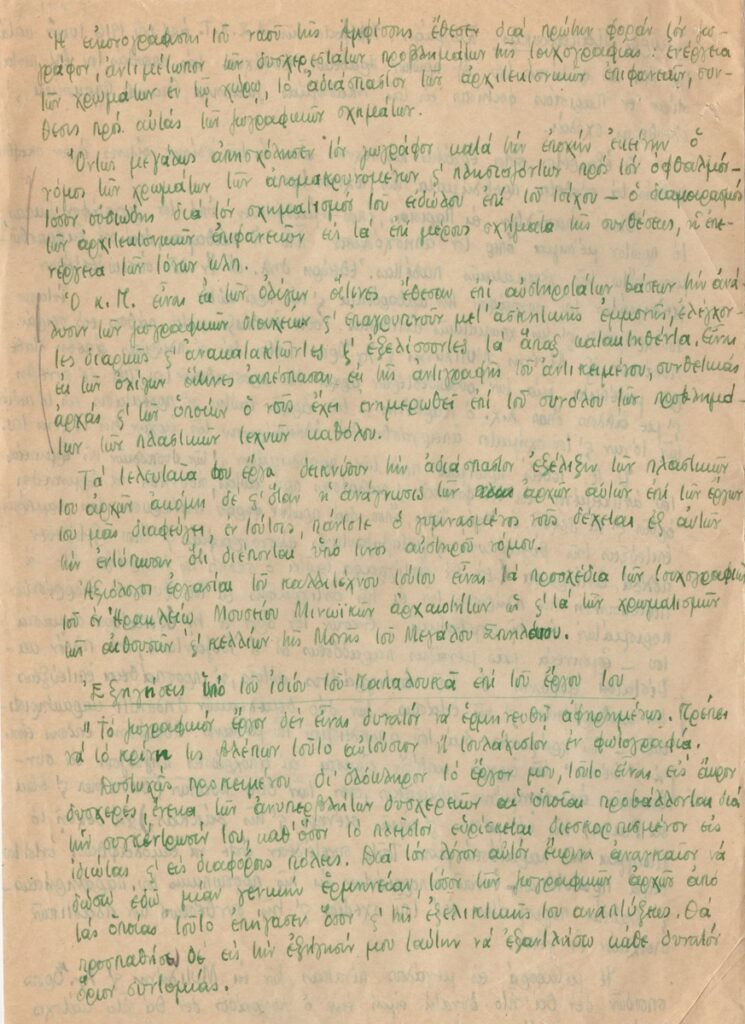 Ἡ εἰκονογράφησις τοῦ ναοῦ τῆς Ἀμφίσσης ἔθεσεν διὰ πρώτην φορὰν τὸν ζω-
γράφον, ἀντιμέτωπον τῶν δυσχερεστάτων προβλημάτων τῆς τοιχογραφίας: ἐνέργεια
τῶν χρωμάτων ἐν τῷ χώρῳ, τὸ ἀδιάσπαστον τῶν ἀρχιτεκτονικῶν ἐπιφανειῶν, συν-
θεσις πρὸς αὐτὰς τῶν ζωγραφικῶν σχημάτων.
Ὄντως μεγάλως ἀπησχόλησεν τὸν ζωγράφον κατὰ τὴν ἐποχὴν ἐκείνην ὁ
νόμος τῶν χρωμάτων τῶν ἀπομακρυνομένων ϛ' πλησιαζόντων πρὸς τὸν ὀφθαλμόν-
τόσον οὐσιώδης διὰ τὸν σχηματισμὸν τοῦ εἰδώλου ἐπὶ τοῦ τοίχου — ὁ διαμοιρασμὸς
τῶν ἀρχιτεκτονικῶν ἐπιφανειῶν εἰς τὰ ἐπὶ μέρους σχήματα τῆς συνθέσεως, ἡ ἐπε-
νέργεια τῶν τόνων κλπ.
Ὁ κ. Π. εἶναι ἐκ τῶν ὀλίγων οἵτινες ἔθεσαν ἐπὶ αὐστηροτάτων βάσεων τὴν ἀνά-
λυσιν τῶν ζωγραφικῶν στοιχείων ϛ' ἐπαγρυπνοῦν μετ' ἀσκητικῆς ἐμμονῆς, ἐλέγχον-
τες διαρκῶς ϛ' ἀνακατακτῶντες ϛ' ἐξελίσσοντες τὰ ἅπαξ κατακτηθέντα. Εἶναι
ἐκ τῶν ὀλίγων οἵτινες ἀπέσπασαν ἐκ τῆς ἀντιγραφῆς τοῦ ἀντικειμένου, συνθετικὰς
ἀρχὰς ϛ' τῶν ὁποίων ὁ νοῦς ἔχει ἐνημερωθεῖ ἐπὶ τοῦ συνόλου τῶν προβλημά-
των τῶν πλαστικῶν τεχνῶν καθόλου.
Τὰ τελευταῖα του ἔργα δεικνύουν τὴν ἀδιάσπαστον ἐξέλιξιν τῶν πλαστικῶν
του ἀρχῶν ἀκόμη δὲ ϛ' ὅταν ἡ ἀνάγνωσις τῶν ἀρχῶν αὐτῶν ἐπὶ τῶν ἔργων
του μᾶς διαφεύγει, ἐν τούτοις, πάντοτε ὁ γυμνασμένος νοῦς δέχεται ἐξ αὐτῶν
τὴν ἐντύπωσιν ὅτι διέπονται ὑπὸ τινος αὐστηροῦ νόμου.
Ἀξιόλογοι ἐργασίαι τοῦ καλλιτέχνου τούτου εἶναι τὰ προσχέδια τῶν τοιχογραφιῶν
τοῦ ἐν Ἡρακλείῳ Μουσείου Μινωϊκῶν ἀρχαιοτήτων ὡς ϛ' τὰ τῶν χρωματισμῶν
τῶν αἰθουσῶν ϛ' κελλίων τῆς Μονῆς τοῦ Μεγάλου Σπηλαίου.
Ἐξηγήσεις ὑπὸ τοῦ ἰδίου τοῦ Παπαλουκᾶ ἐπὶ τοῦ ἔργου του
"Τὸ ζωγραφικὸν ἔργον δὲν εἶναι δυνατὸν νὰ ἑρμηνευθῇ ἀφηρημένως. Πρέπει
νὰ τὸ κρίνῃ τις βλέπων τοῦτο αὐτούσιον ἢ τοὐλάχιστον ἐν φωτογραφίᾳ.
Δυστυχῶς προκειμένου δι' ὁλόκληρον τὸ ἔργον μου, τοῦτο εἶναι εἰς ἄκρον
δυσχερές, ἕνεκα τῶν ἀνυπερβλήτων δυσχερειῶν αἱ ὁποῖαι προβάλλονται διὰ
τὴν συγκέντρωσίν του, καθ' ὅσον τὸ πλεῖστον εὑρίσκεται διεσκορπισμένον εἰς
ἰδιώτας ϛ' εἰς διαφόρους πόλεις. Διὰ τὸν λόγον αὐτὸν εὑρῆκα ἀναγκαῖον νὰ
δώσω ἐδῶ μίαν γενικὴν ἑρμηνείαν, τόσον τῶν ζωγραφικῶν ἀρχῶν ἀπὸ
τὰς ὁποίας τοῦτο ἐπήγασεν ὅσον ϛ' τῆς ἐξελικτικῆς του ἀναπτύξεως. Θὰ
προσπαθήσω δὲ εἰς τὴν ἐξήγησίν μου ταύτην νὰ ἐξαντλήσω κάθε δυνατὸν
ὅριον συντομίας.